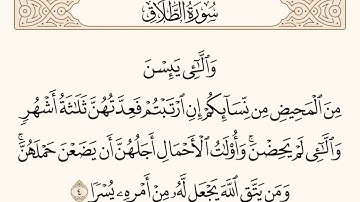 سُورَةُ الطَّلَاقِ
وَٱلَّٰٓـِٔي يَئِسْنَ
مِنَ ٱلْمَحِيضِ مِن نِّسَآئِكُمْ إِنِ ٱرْتَبْتُمْ فَعِدَّتُهُنَّ ثَلَٰثَةُ أَشْهُرٍ
وَٱلَّٰٓـِٔي لَمْ يَحِضْنَ ۚ وَأُو۟لَٰتُ ٱلْأَحْمَالِ أَجَلُهُنَّ أَن يَضَعْنَ حَمْلَهُنَّ ۚ
وَمَن يَتَّقِ ٱللَّهَ يَجْعَل لَّهُۥ مِنْ أَمْرِهِۦ يُسْرًا ٤